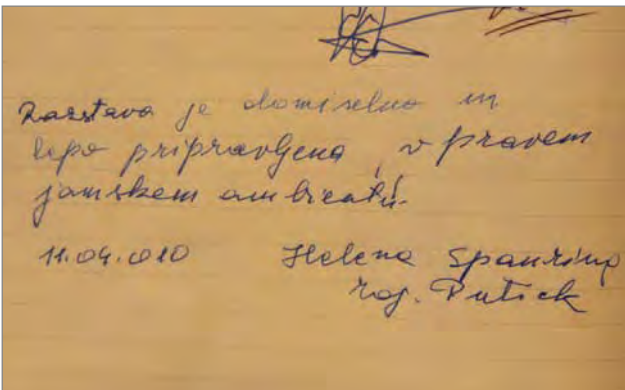 Razstava je domiselno in
lepo pripravljena, v pravem
jamskem ambientu.
11.04.010 Helena
roj. Putick